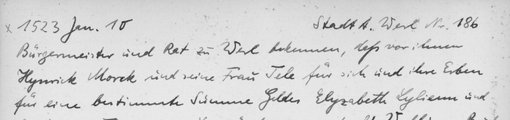 x 1523 Jan. 10 Stadt A. Werl Nr. 186
Bürgermeister und Rat zu Werl bekennen, daß vor ihnen
Hynrick Morck und seine Frau Tele für sich und ihre Erben
für eine bestimmte Summe Geldes Elyzabeth Lyliens und